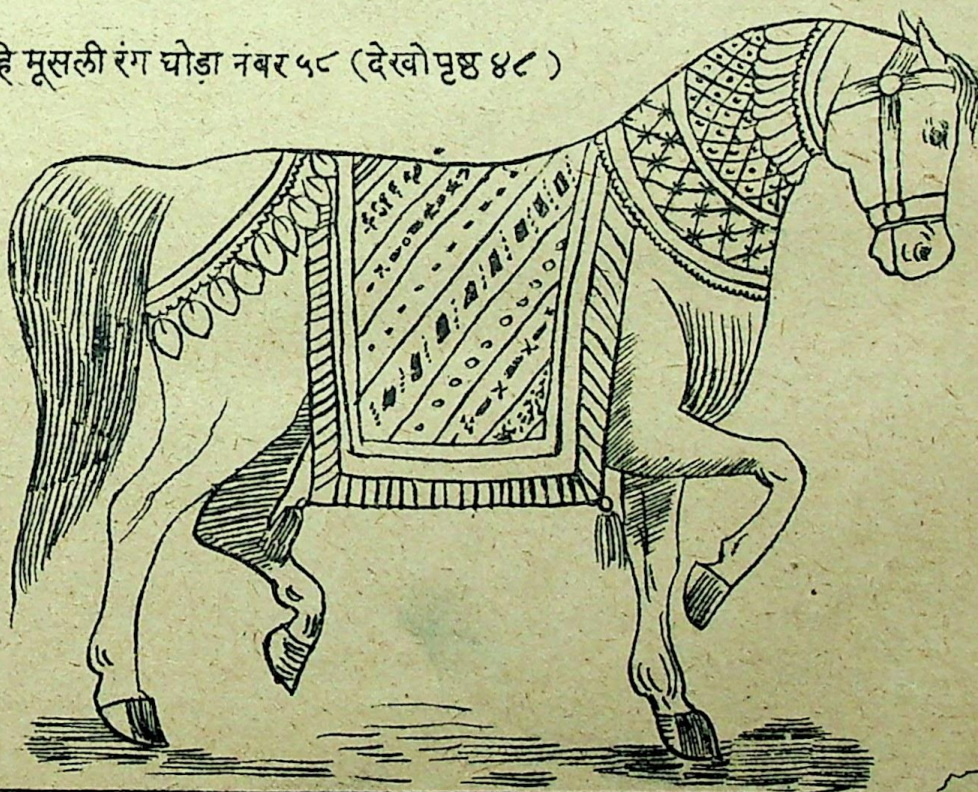 हे मूसली रंग घोड़ा नंबर ५८ (देखो पृष्ठ ४८)